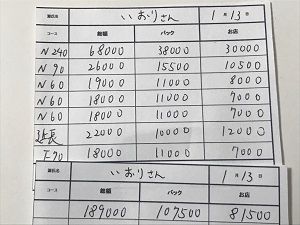 源氏名 いおりさん 1月13日
コース 総額 バック お店
N240 68000 38000 30000
N90 26000 15500 10500
N60 19000 11000 8000
N60 18000 11000 7000
N60 18000 11000 7000
延長 22000 10000 12000
F70 18000 11000 7000
源氏名 いおりさん 1月13日
コース 総額 バック お店
189000 107500 81500